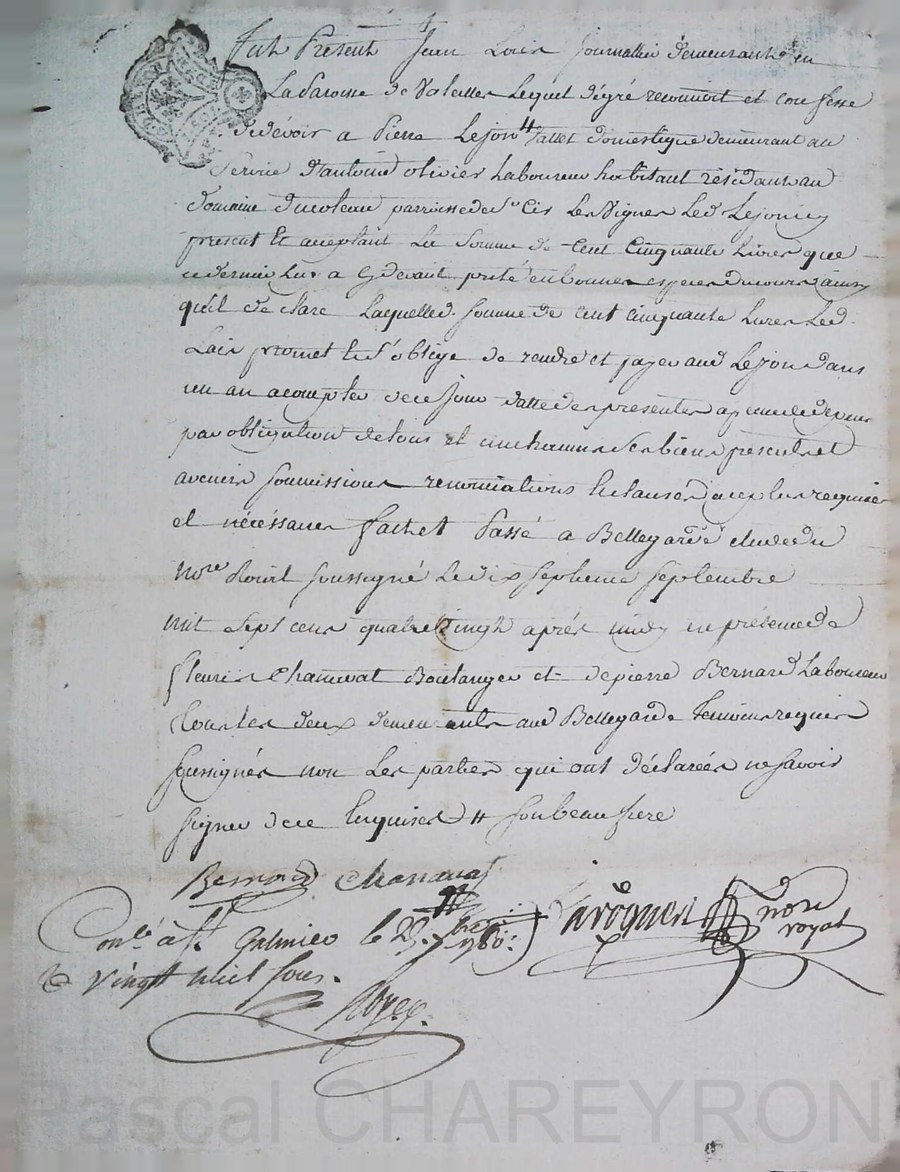 Fut Présent Jean Loire Journallier demeurant en
La Paroisse de Valeilles Lequel de gré reconnoit et confesse
de dévoir a Pierre Lejon # Vallet domestique demeurant au
Service d'antoine olivier Laboureur habitant résidant au
domaine du coteau parroisse de St Cir Les Vignes Led Lejon icy
present et acceptant La Somme de Cent Cinquante Livres que
ce dernier Lui a cy devant preté en bonnes especes du cours ainsy
qu'il declare Laquelle d. somme de cent cinquante Livres Led.
Loire promet et s'oblige de rendre et payer aud Lejon dans
un an a compter de ce jour datte des presentes a peine de depens
par obligation de tous et un chacuns ses biens presents et
avenirs soumissions renonciations et clauses a ce plus requises
et nécéssaires fait et Passé a Bellegarde etude du
nore Roial soussigné Le dix septieme septembre
mil sept cens quatre vingt aprés midy en présence de
fleuris Chanavat Boulanger et de pierre Bernard Laboureur
tous les deux demeurants aud Bellegarde temoins requis
soussignés non Les parties qui ont déclarées ne savoir
signer de ce Enquises # son beau frere
Bernard Chanavat
Laroquen nore
royal
Conlé à St Galmier le 23. 7bre 1780.
R vingt neuf sous.
Pascal CHAREYRON